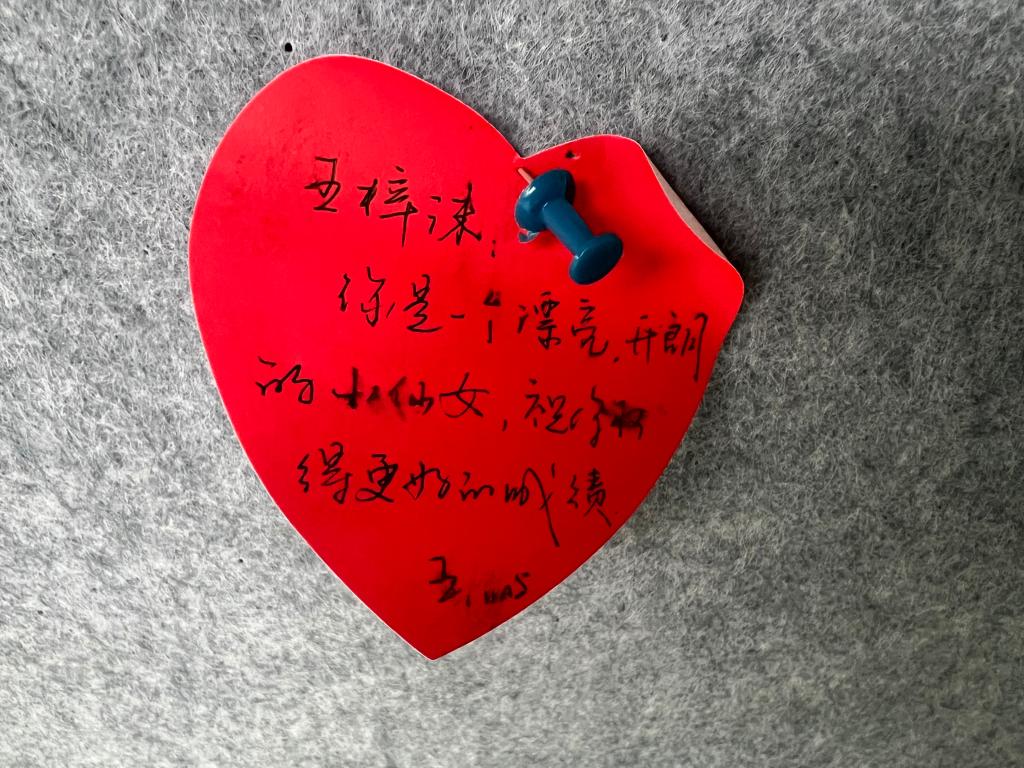 梓涞：
你是一个漂亮、开朗
的小仙女，祝你取
得更好的成绩